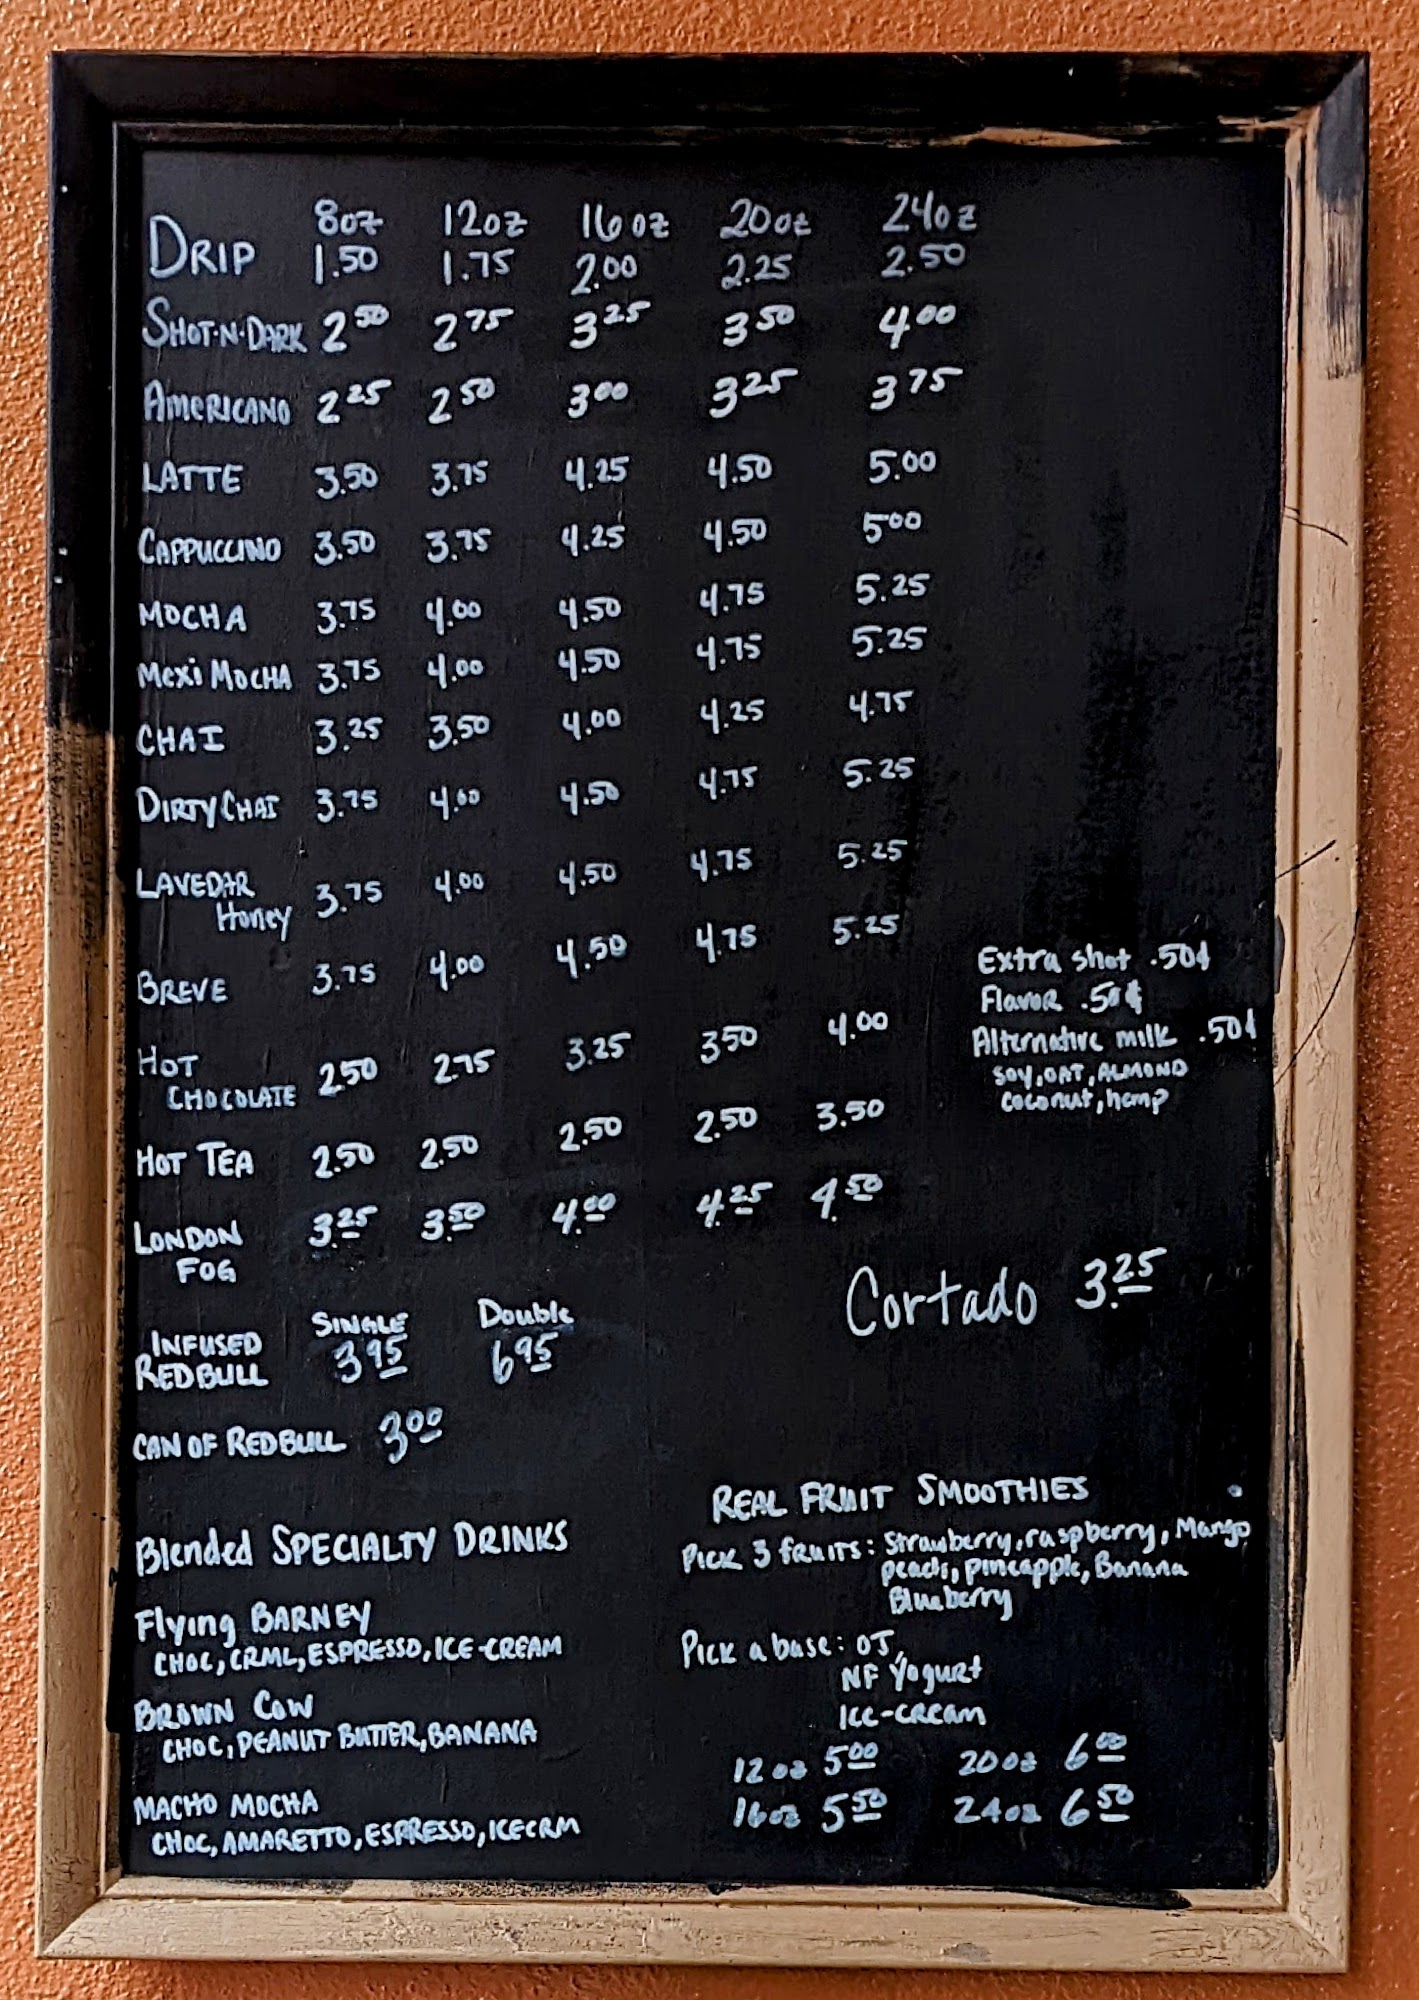 8oz 12oz 16oz 20oz 24oz
DRIP 1.50 1.75 2.00 2.25 2.50
SHOT-N-DARK 2 50 2 75 3 25 3 50 4 00
AMERICANO 2 25 2 50 3 00 3 25 3 75
LATTE 3.50 3.75 4.25 4.50 5.00
CAPPUCCINO 3.50 3.75 4.25 4.50 5 00
MOCHA 3.75 4.00 4.50 4.75 5.25
Mexi MOCHA 3.75 4.00 4.50 4.75 5.25
CHAI 3.25 3.50 4.00 4.25 4.75
DIRTY CHAI 3.75 4.00 4.50 4.75 5.25
LAVEDAR
Honey 3.75 4.00 4.50 4.75 5.25
BREVE 3.75 4.00 4.50 4.75 5.25
HOT
CHOCOLATE 2.50 2.75 3.25 3.50 4.00
HOT TEA 2.50 2.50 2.50 2.50 3.50
LONDON
FOG 3.25 3.50 4.00 4.25 4.50
Extra shot .50¢
Flavor .50¢
Alternative milk .50¢
SOY, OAT, ALMOND
coconut, hemp
Cortado 3.25
SINGLE Double
INFUSED
REDBULL 3 95 6 95
CAN OF REDBULL 3 00
Blended SPECIALTY DRINKS
Flying BARNEY
CHOC, CRML, ESPRESSO, ICE-CREAM
BROWN COW
CHOC, PEANUT BUTTER, BANANA
MACHO MOCHA
CHOC, AMARETTO, ESPRESSO, ICECRM
REAL FRUIT SMOOTHIES
Pick 3 fruits: Strawberry, raspberry, Mango
peach, pineapple, Banana
Blueberry
Pick a base: OJ,
NF Yogurt
Ice-cream
12oz 5 00 20oz 6 00
16oz 5 50 24oz 6 50